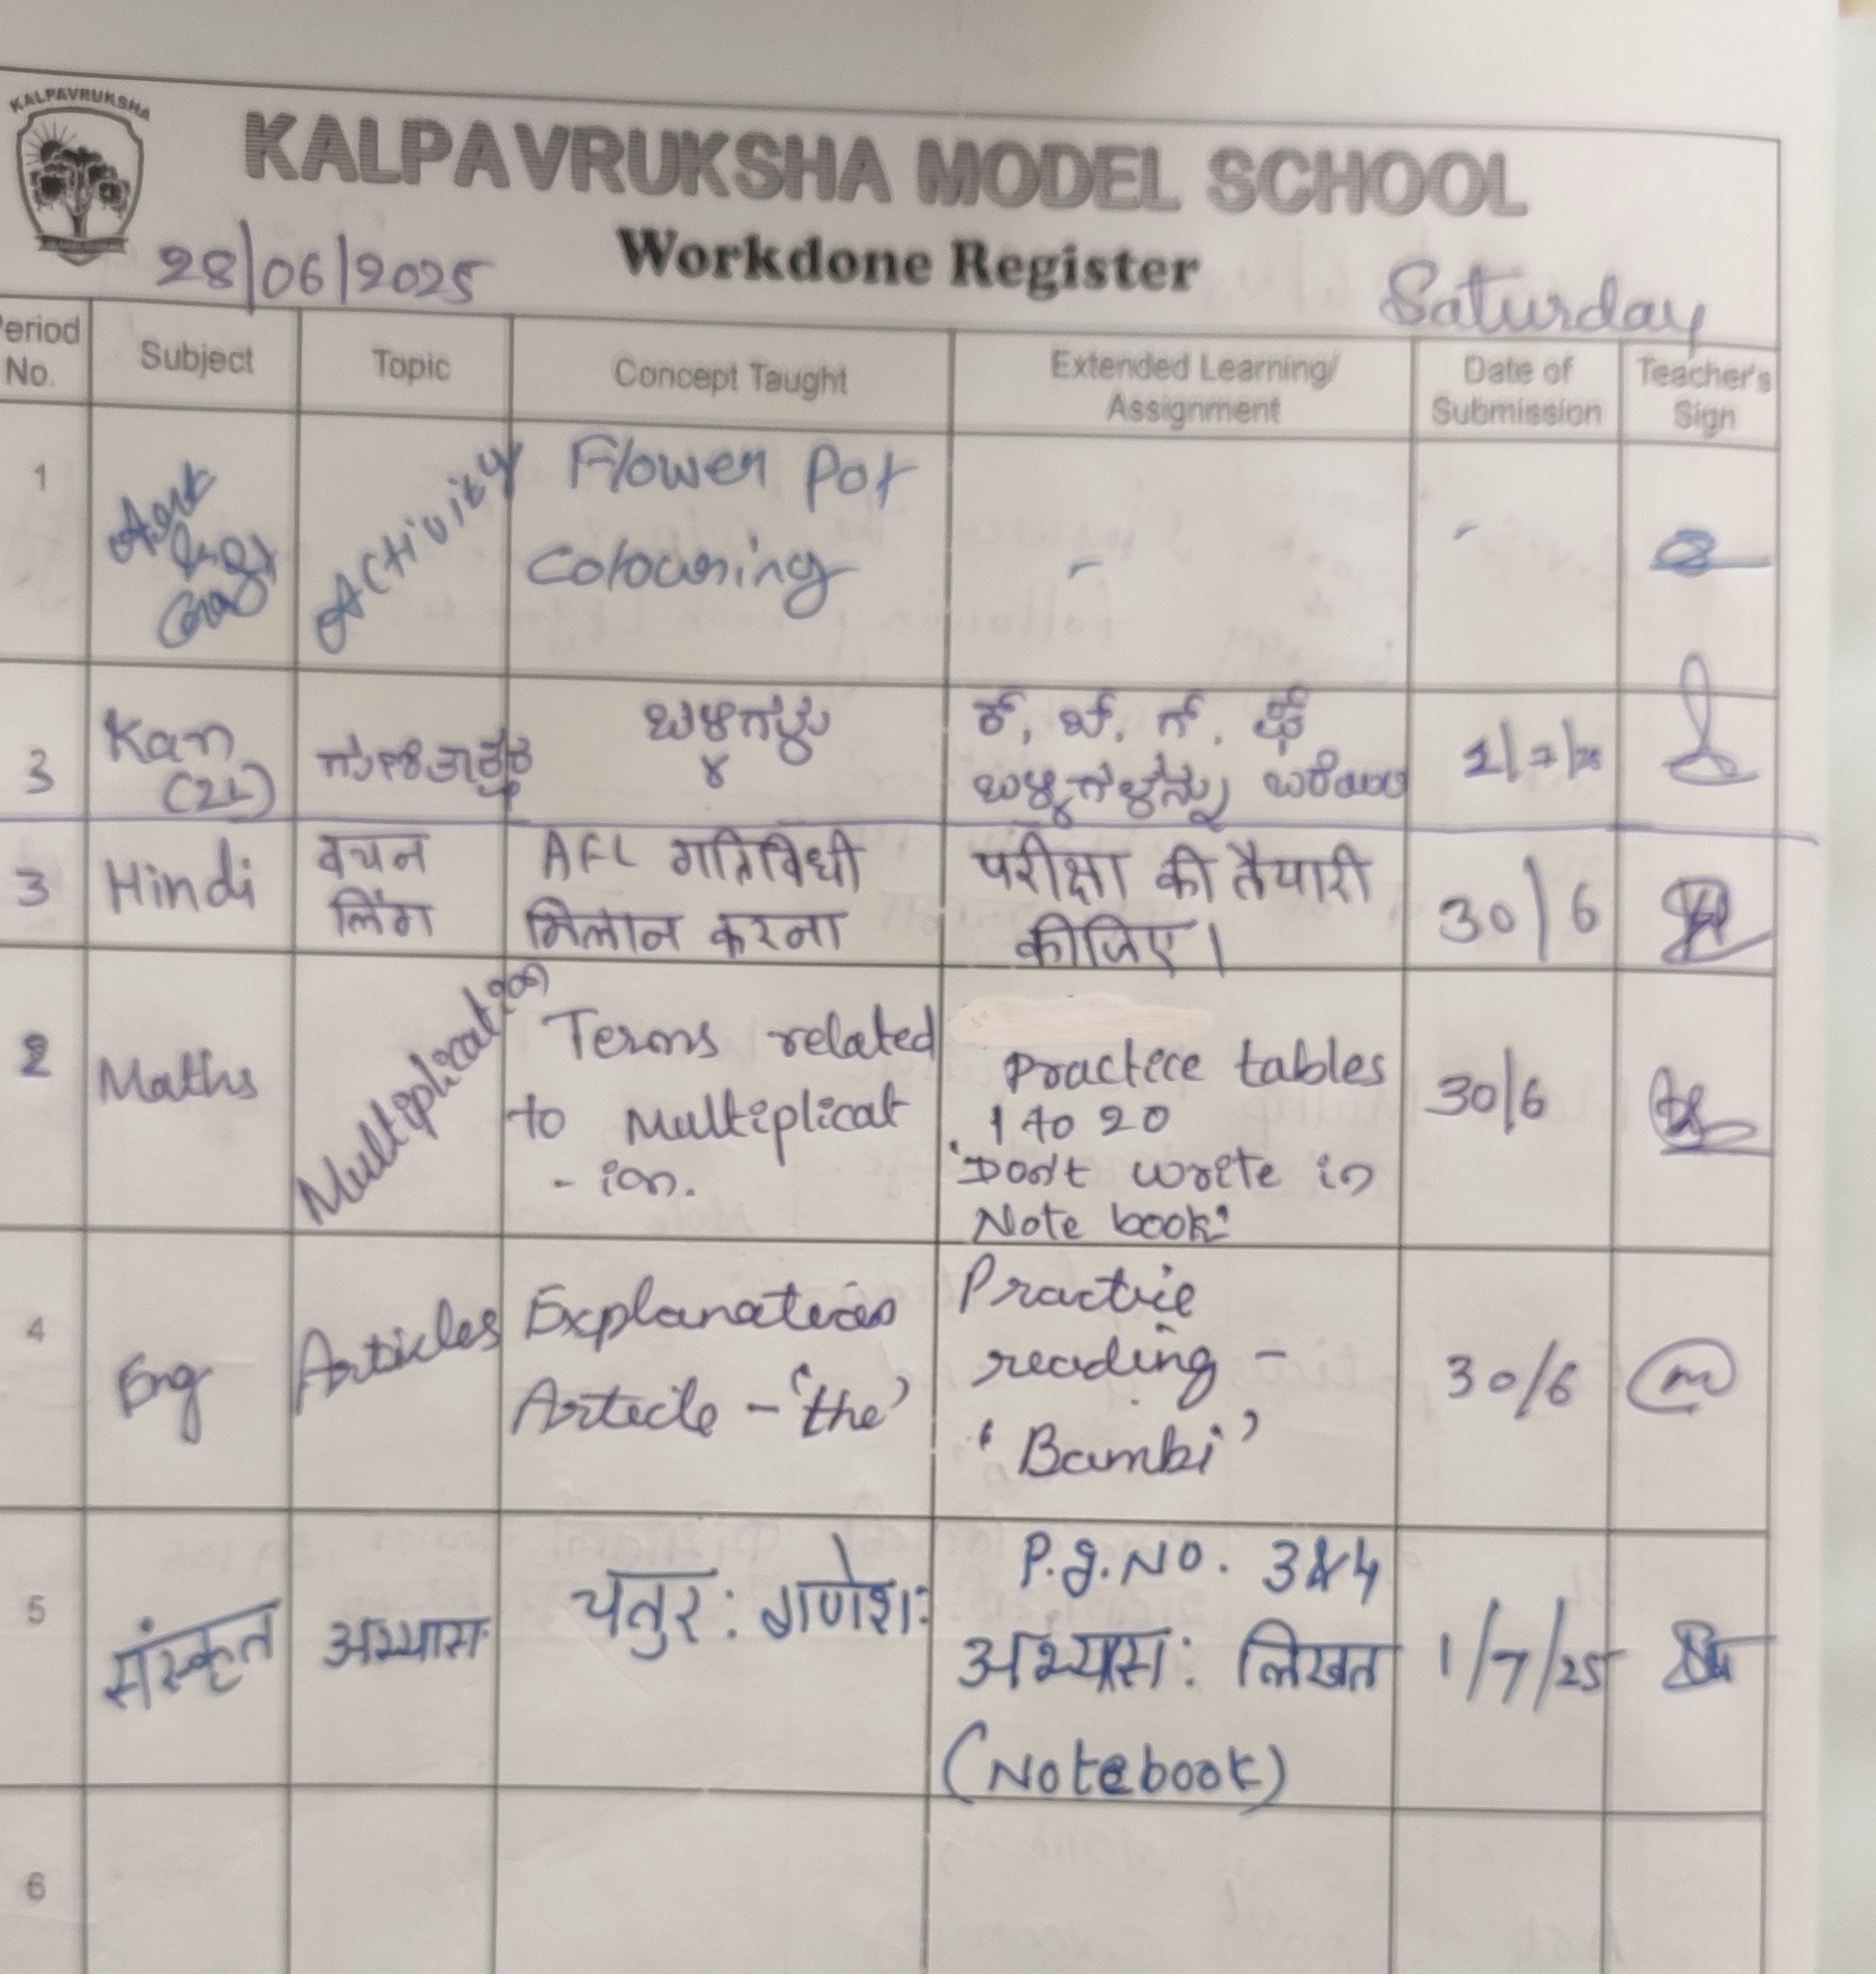 KALPAVRUKSHA
KALPAVRUKSHA MODEL SCHOOL
28/06/2025
Workdone Register
Saturday
Period No.
Subject
Topic
Concept Taught
Extended Learning/
Assignment
Date of
Submission
Teacher's
Sign
1
Activity
Flower Pot
Colouring
-
-
3
Kan
(2L)
ಗುಣಿತಾಕ್ಷರ
ಬಳ್ಳಿಗಳು
ಕ್, ಖ್, ಗ್, ಘ್
ಬರೆಯಿರಿ
3
Hindi
वचन
लिंग
AFL गतिविधी
मिलान करना
परीक्षा की तैयारी
कीजिए।
30/6
2
Maths
Multiplication
Terms related
to Multiplicat
- ion.
Practice tables
1 to 20
'Don't write in
Note book'
30/6
4
Eng
Articles
Explanation
Article - 'the'
Practice
reading -
'Bambi'
30/6
5
संस्कृत
अभ्यासः
चतुरः गणेशः
P.g.NO. 3&4
अभ्यासः लिखत
(Notebook)
1/7/25
6